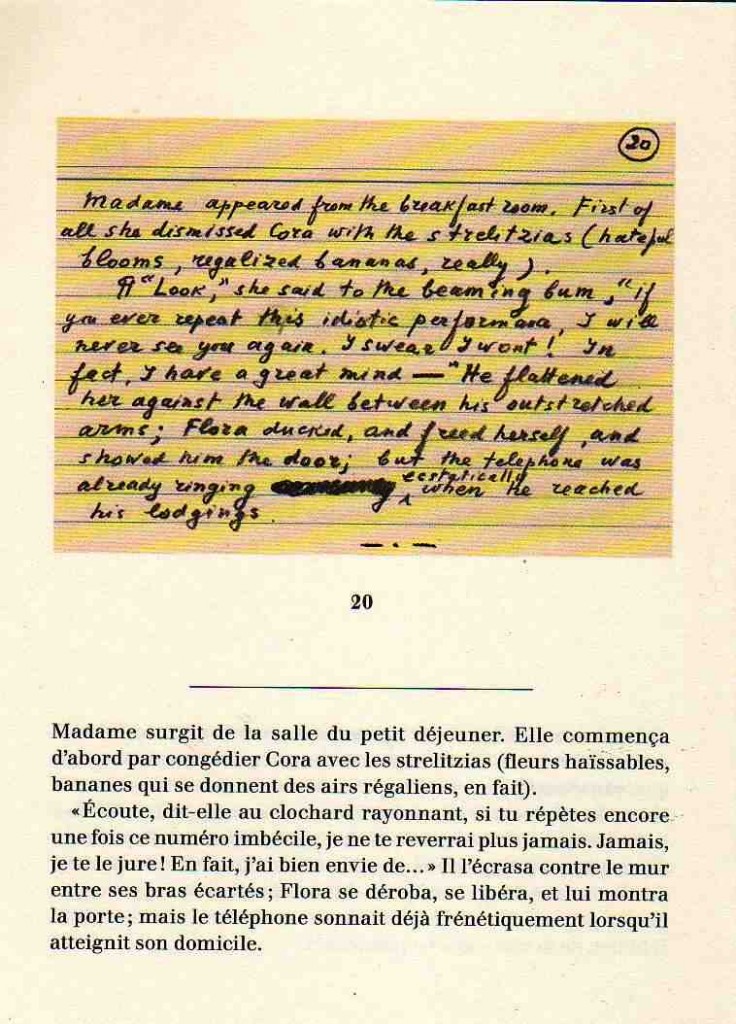 20
Madame appeared from the breakfast room. First of
all she dismissed Cora with the strelitzias (hateful
blooms, regalized bananas, really).
¶ "Look," she said to the beaming bum, "if
you ever repeat this idiotic performance, I will
never see you again. I swear I wont! In
fact, I have a great mind — " He flattened
her against the wall between his outstretched
arms; Flora ducked, and freed herself, and
showed him the door; but the telephone was
already ringing ecstatically when he reached
his lodgings.
— . —
20
Madame surgit de la salle du petit déjeuner. Elle commença
d'abord par congédier Cora avec les strelitzias (fleurs haïssables,
bananes qui se donnent des airs régaliens, en fait).
«Écoute, dit-elle au clochard rayonnant, si tu répètes encore
une fois ce numéro imbécile, je ne te reverrai plus jamais. Jamais,
je te le jure! En fait, j'ai bien envie de...» Il l'écrasa contre le mur
entre ses bras écartés; Flora se déroba, se libéra, et lui montra
la porte; mais le téléphone sonnait déjà frénétiquement lorsqu'il
atteignit son domicile.